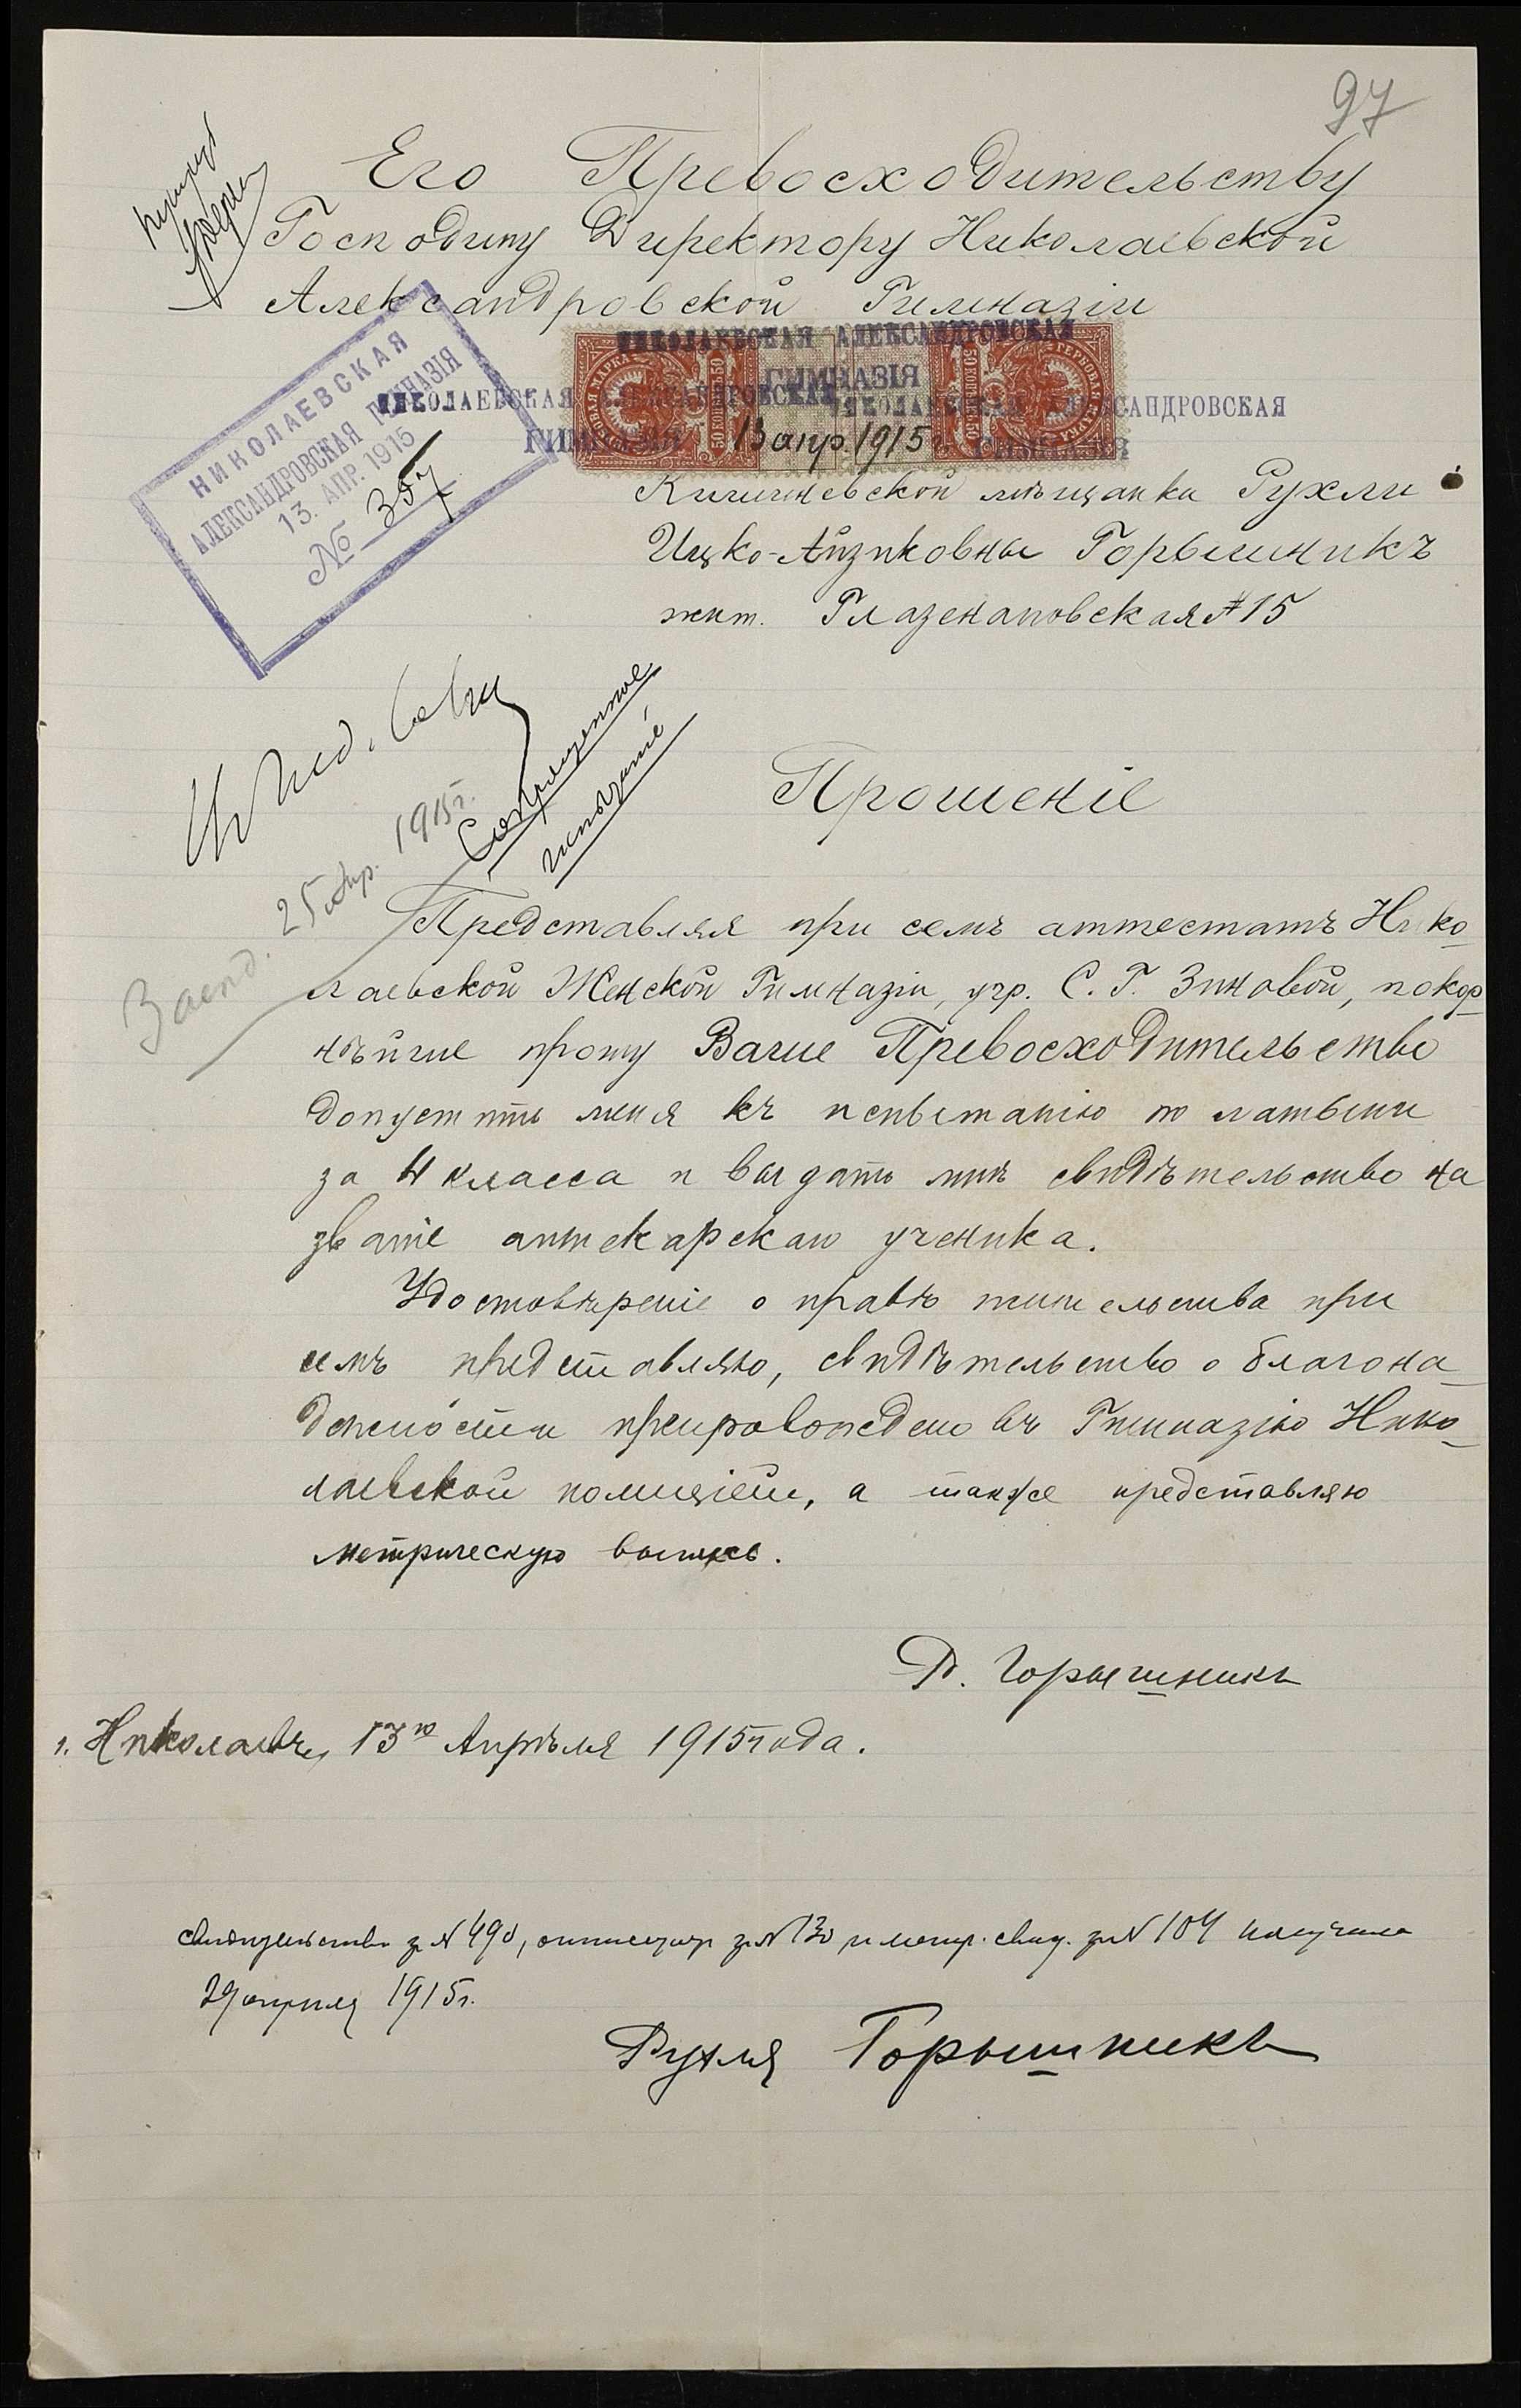 97
Его Превосходительству
Господину Директору Николаевской
Александровской Гимназіи
НИКОЛАЕВСКАЯ
АЛЕКСАНДРОВСКАЯ ГИМНАЗІЯ
13. АПР. 1915
№ 357
НИКОЛАЕВСКАЯ АЛЕКСАНДРОВСКАЯ
ГИМНАЗІЯ
НИКОЛАЕВСКАЯ АЛЕКСАНДРОВСКАЯ
ГИМНАЗІЯ
НИКОЛАЕВСКАЯ АЛЕКСАНДРОВСКАЯ
ГИМНАЗІЯ
13 апр. 1915
ГЕРБОВАЯ МАРКА
50 КОП. 50
ГЕРБОВАЯ МАРКА
50 КОП. 50
Кишиневской мѣщанки Рухли
Ицко-Айзиковны Горышникъ
жит. Глазенаповская № 15
Сокращенное
испытаніе
25 апр. 1915 г.
Прошеніе
Представляя при семъ аттестатъ Нико-
лаевской Женской Гимназіи, учр. С. Г. Зиновой, покор-
нѣйше прошу Ваше Превосходительство
допустить меня къ испытанію по латыни
за 4 класса и выдать мнѣ свидѣтельство на
званіе аптекарскаго ученика.
Удостовѣреніе о правѣ жительства при
семъ представляю, свидѣтельство о благона-
дежности препровождено въ Гимназію Нико-
лаевской полиціей, а также представляю
метрическую выпись.
Р. Горышникъ
г. Николаевъ, 13го Апрѣля 1915 года.
свидѣтельство за № 490, аттестат за № 130 и метр. свид. за № 104 получила
29 апрѣля 1915 г.
Рухля Горышникъ